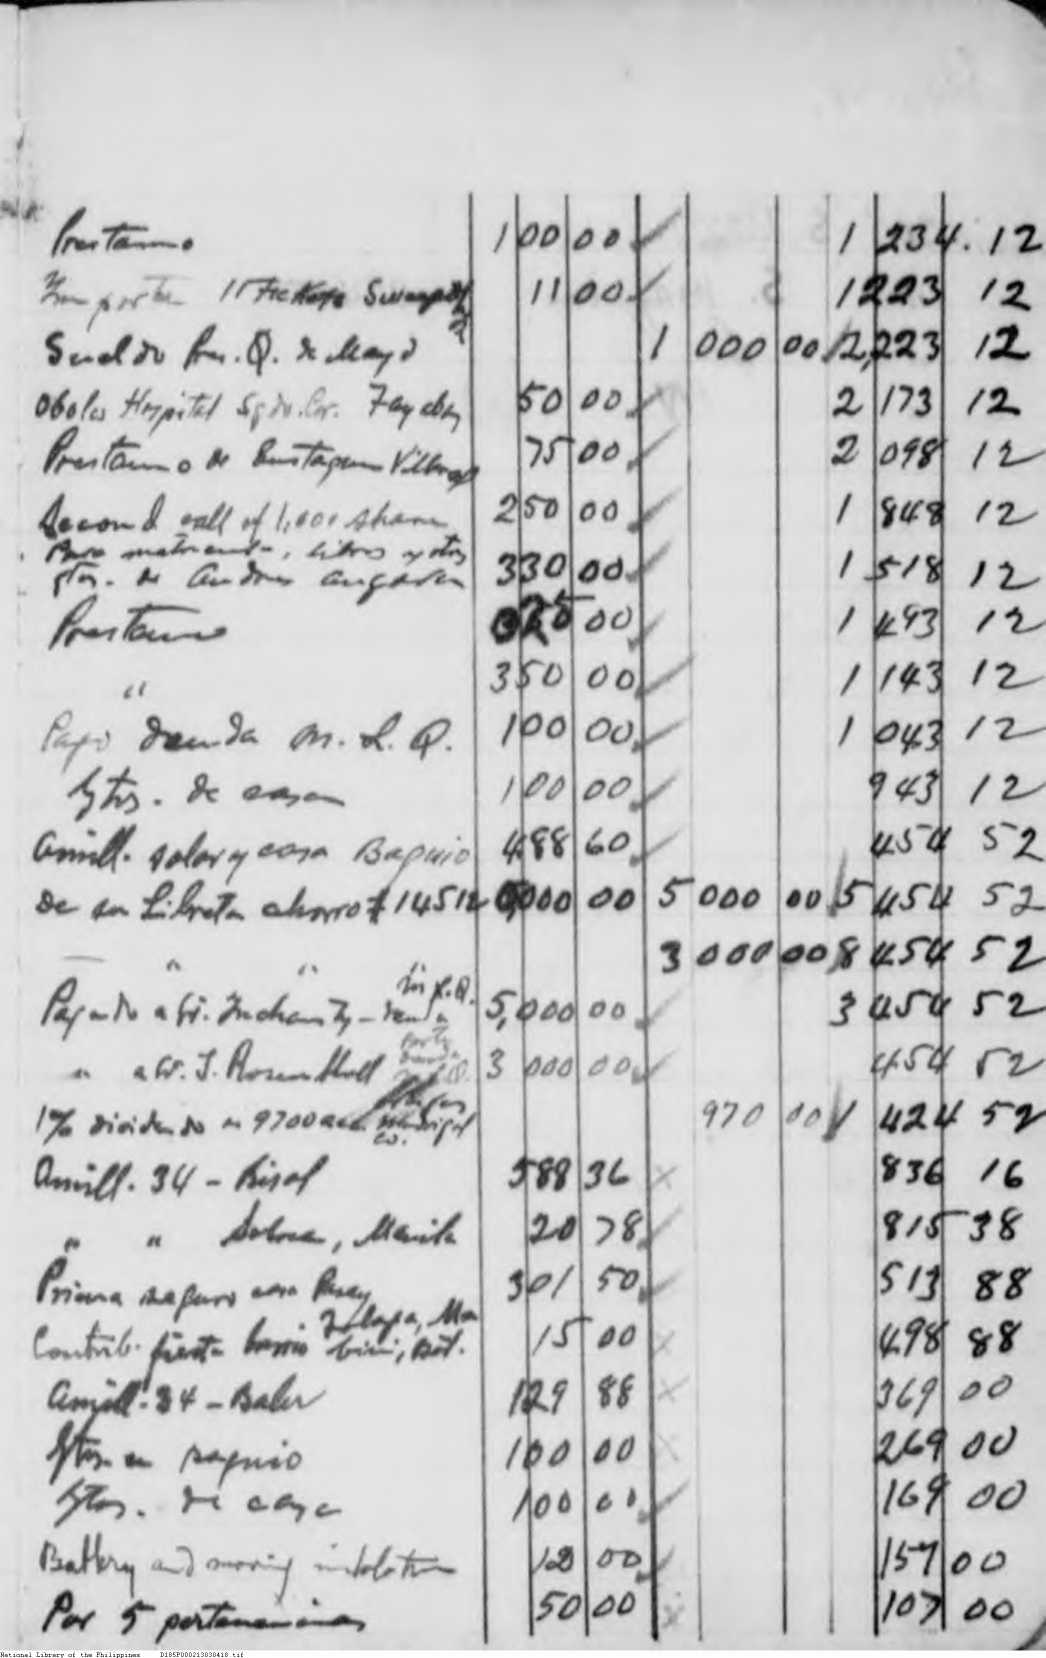 Prestamo 100 00 1 234.12
Importe 11 Tickets Sweeps 11 00 1223 12
Sueldo Pres. Q. de Mayo 1 000 00 2,223 12
Obolos Hospital Sgdo. Cor. Tayabas 50 00 2 173 12
Prestamo de Eustaquio 75 00 2 098 12
Second call of 1,000 shares 250 00 1 848 12
Para matricula, libros y otros
gtos. de Andres Angara 330 00 1 518 12
Prestamo 25 00 1 493 12
" 350 00 1 143 12
Pago deuda M. L. Q. 100 00 1 043 12
Gtos. de casa 100 00 943 12
Amill. solar y casa Baguio 488 60 454 52
De su Libreta ahorro # 14512 000 00 5 000 00 5 454 52
" " 3 000 00 8 454 52
Pagado a Sr. Inchausty - deuda 5,000 00 3 454 52
" a Sr. J. Rosenthal 3 000 00 454 52
1% dividendo 9700 acc. Madrigal Co. 970 00 1 424 52
Amill. 34 - Rizal 588 36 836 16
" " Solocan, Manila 20 78 815 38
Prima seguro casa Pasay 301 50 513 88
Contrib. fiesta barrio 15 00 498 88
Amill. 34 - Baler 129 88 369 00
Gtos. en Baguio 100 00 269 00
Gtos. de casa 100 00 169 00
Battery and moving 12 00 157 00
Por 5 pertenencias 50 00 107 00
National Library of the Philippines D185P000213030418.tif